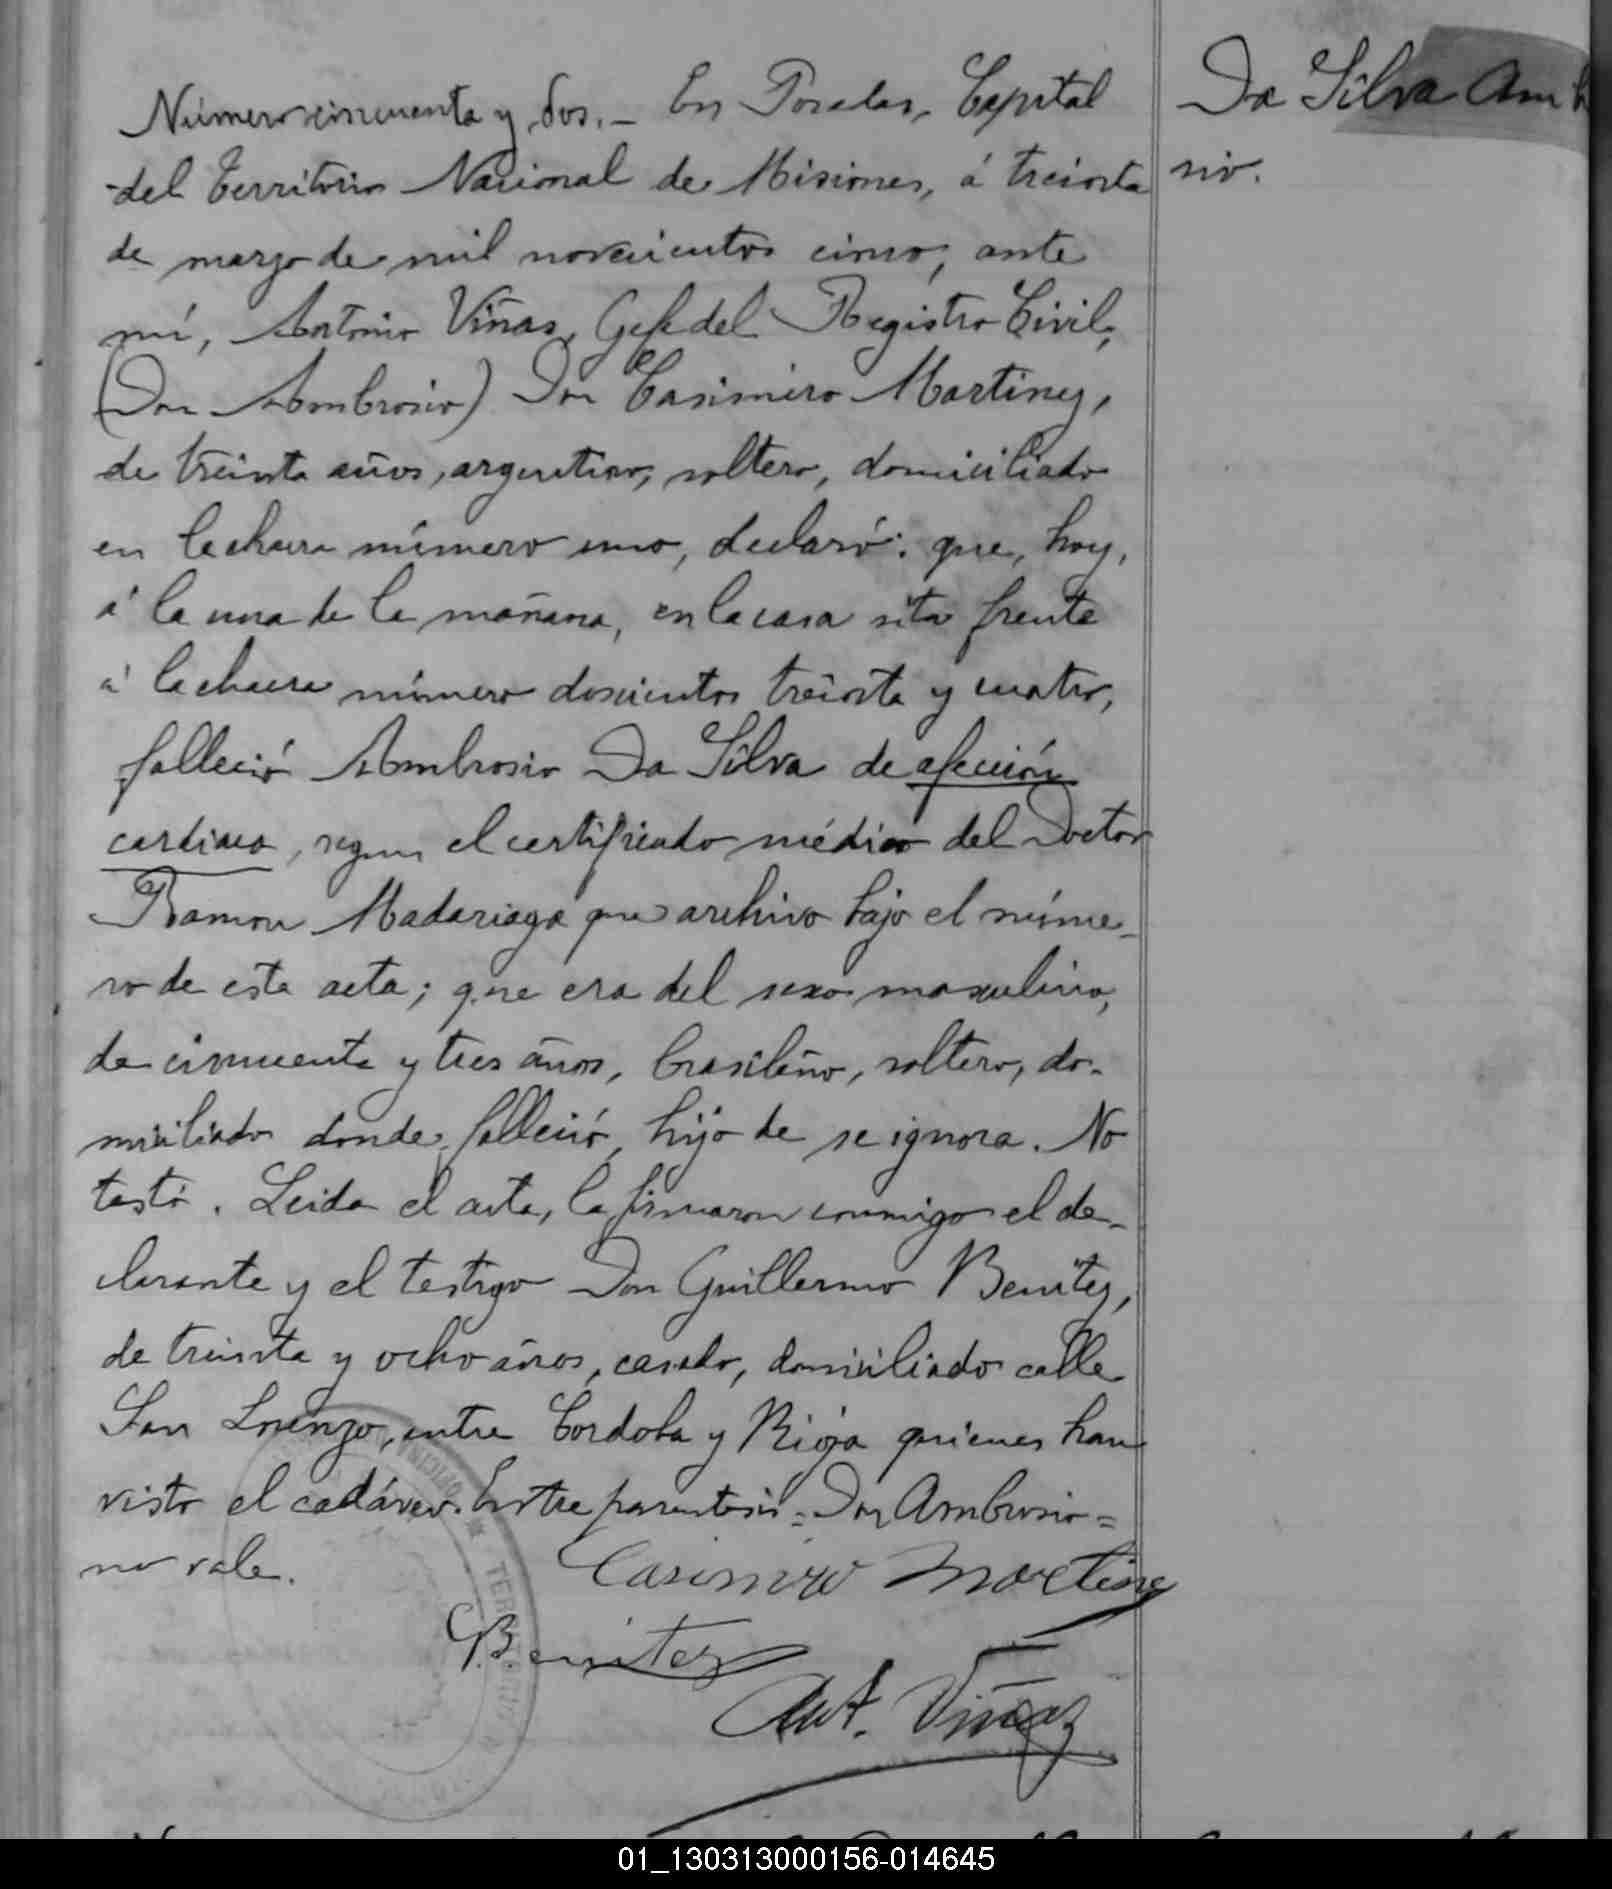 Número cincuenta y dos.- En Posadas, Capital
del Territorio Nacional de Misiones, á treinta
de marzo de mil novecientos cinco, ante
mí, Antonio Viñas, Gefe del Registro Civil,
(Don Ambrosio) Don Casimiro Martinez,
de treinta años, argentino, soltero, domiciliado
en la chacra número uno, declaró: que, hoy,
á la una de la mañana, en la casa sita frente
á la chacra número doscientos treinta y cuatro,
falleció Ambrosio Da Silva de afección
cardiaca, segun el certificado médico del Doctor
Ramon Madariaga que archivo bajo el núme-
ro de esta acta; que era del sexo masculino,
de cincuenta y tres años, brasileño, soltero, do-
miciliado donde falleció, hijo de se ignora. No
testó. Leida el acta, la firmaron conmigo el de-
clarante y el testigo Don Guillermo Benitez,
de treinta y ocho años, casado, domiciliado calle
San Lorenzo, entre Cordoba y Rioja quienes han
visto el cadáver. Entre parentesis = Don Ambrosio =
no vale.
Casimiro Martinez
G. Benitez
Ant. Viñas
Da Silva Amb
sio.
TERRITORIO
01_130313000156-014645